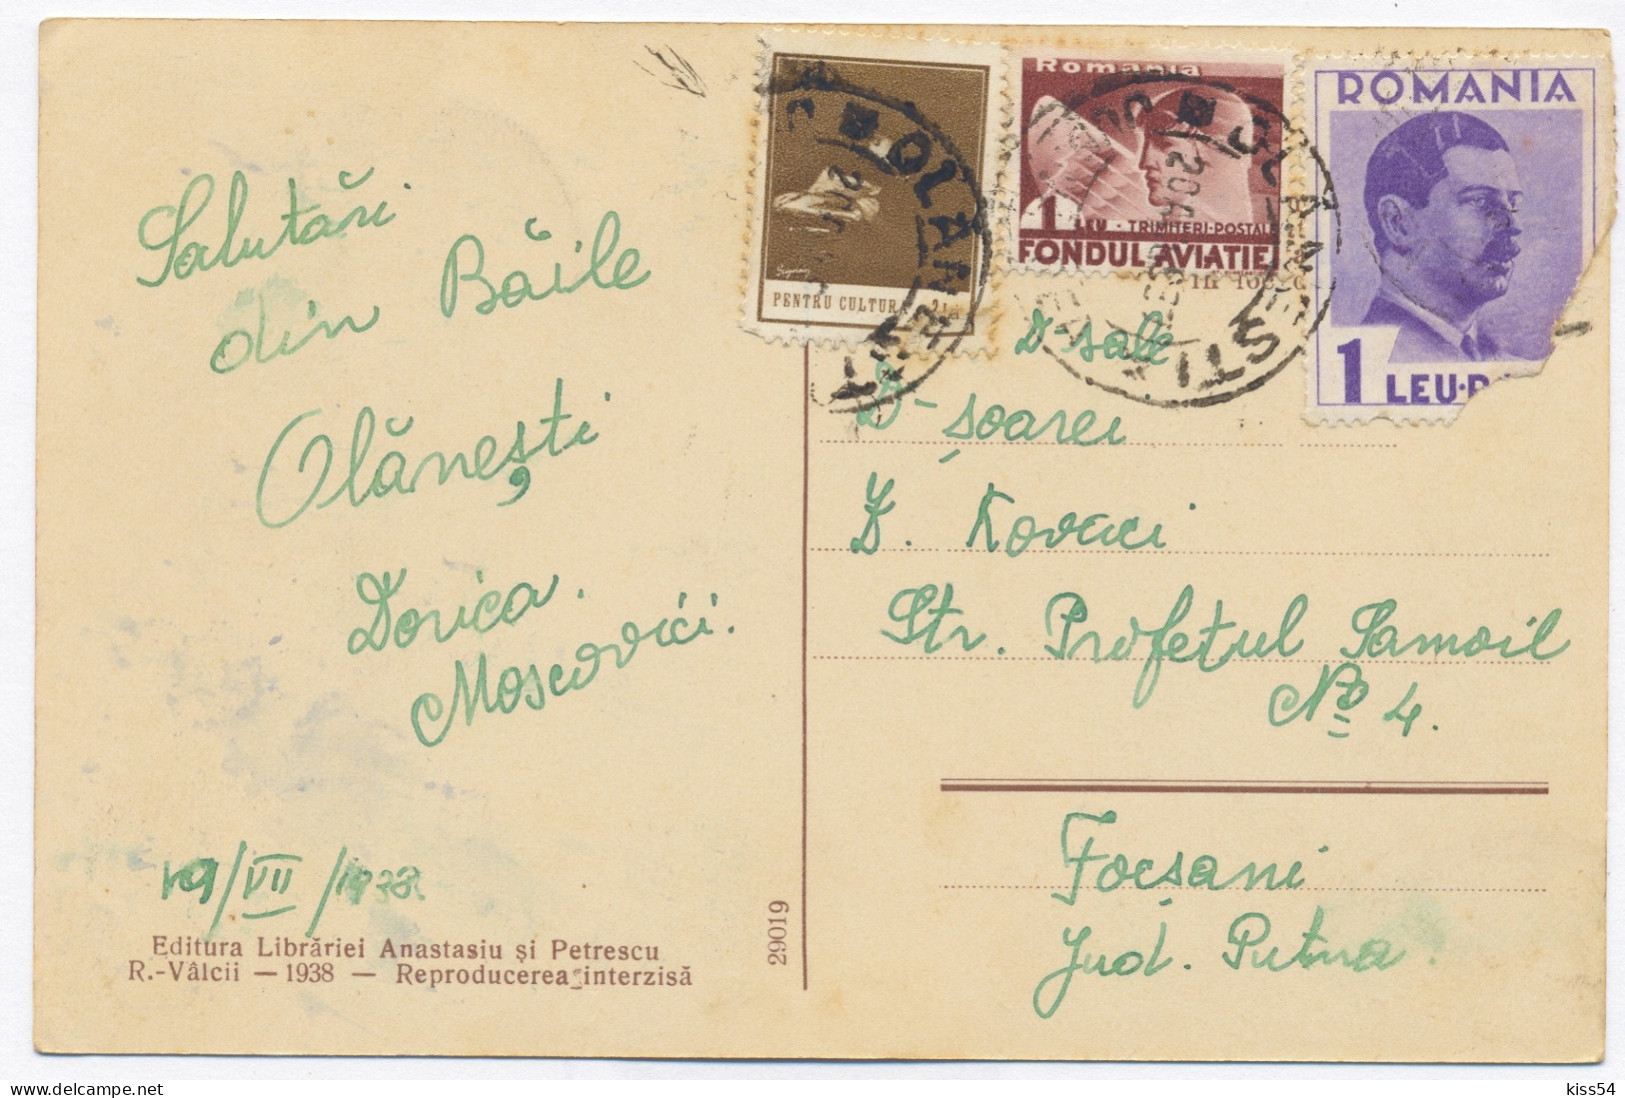 Salutări
din Băile
Olănești
Dorica.
Moscovici.
19/VII/1938.
Editura Librăriei Anastasiu și Petrescu
R.-Vâlcii — 1938 — Reproducerea interzisă
29019
PENTRU CULTURĂ 2 L
Romania
1 LEU · TRIMITERI·POSTALE
FONDUL AVIATIEI
ROMANIA
1 LEU·P
OLANESTI
OLANESTI
D-sale
D-șoarei
D. Kovaci
Str. Profetul Samoil
No 4.
Focșani
Jud. Putna.
kiss54